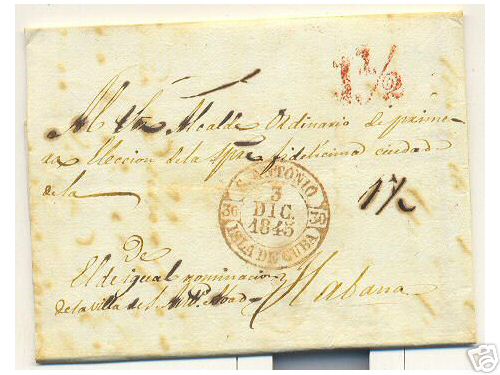 1½
Al Sor Alcalde Ordinario de prime-
ra eleccion de la Spre fidelicima ciudad de
de la
17
S. ANTONIO
3
DIC.
1845
ISLA DE CUBA
De
El de igual nominacion
de la villa de S. Anto Abad
Habana